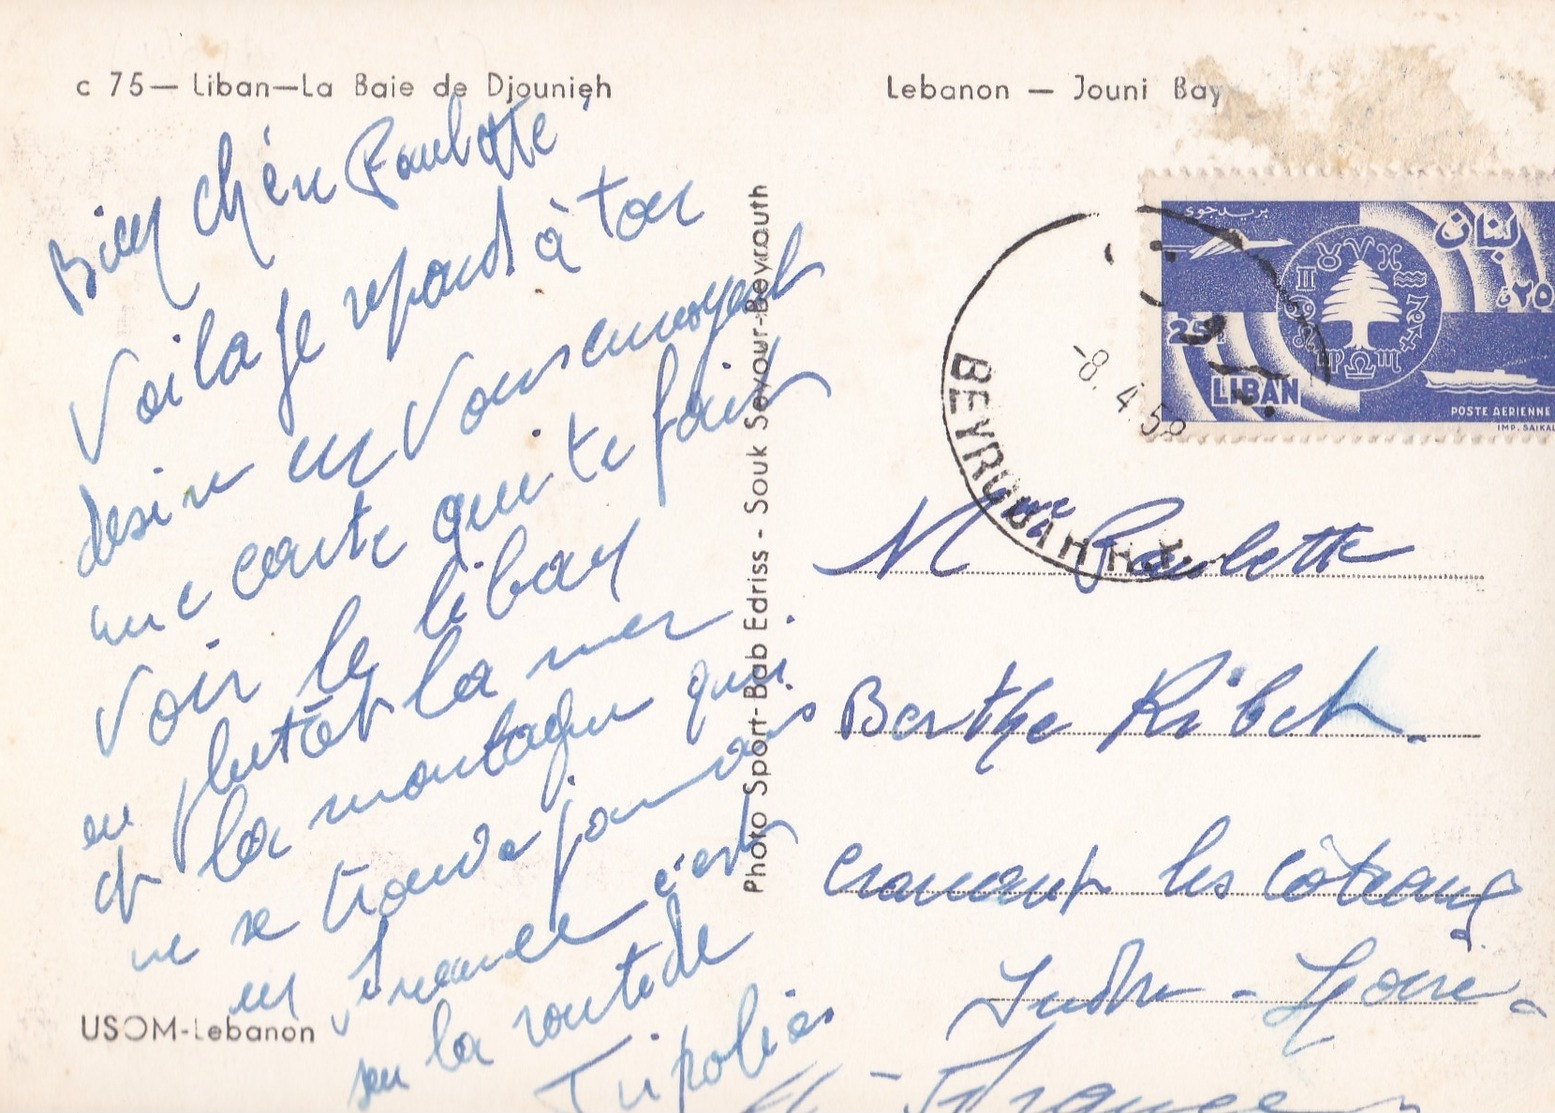 c 75— Liban—La Baie de Djounieh
Lebanon — Jouni Bay
Bien chère Paulette
Voila je repond à ton
desire en Vous envoyant
une carte qui te fait
Voir le liban
ou plutôt la mer
et la montagne qui
ne se trouve jamais
en France c'est
sur la route de
Tripolie.
USOM-Lebanon
Photo Sport-Bab Edriss - Souk Seyour-Beyrouth
بريد جوي
لبنان
٢٥ق
25P
LIBAN
POSTE AERIENNE
IMP. SAIKAL
-8. 4. 58
BEYROUTH
Mme Paulette
Berthe Ribet.
Cravant les Côteaux
Indre - Loire.
France